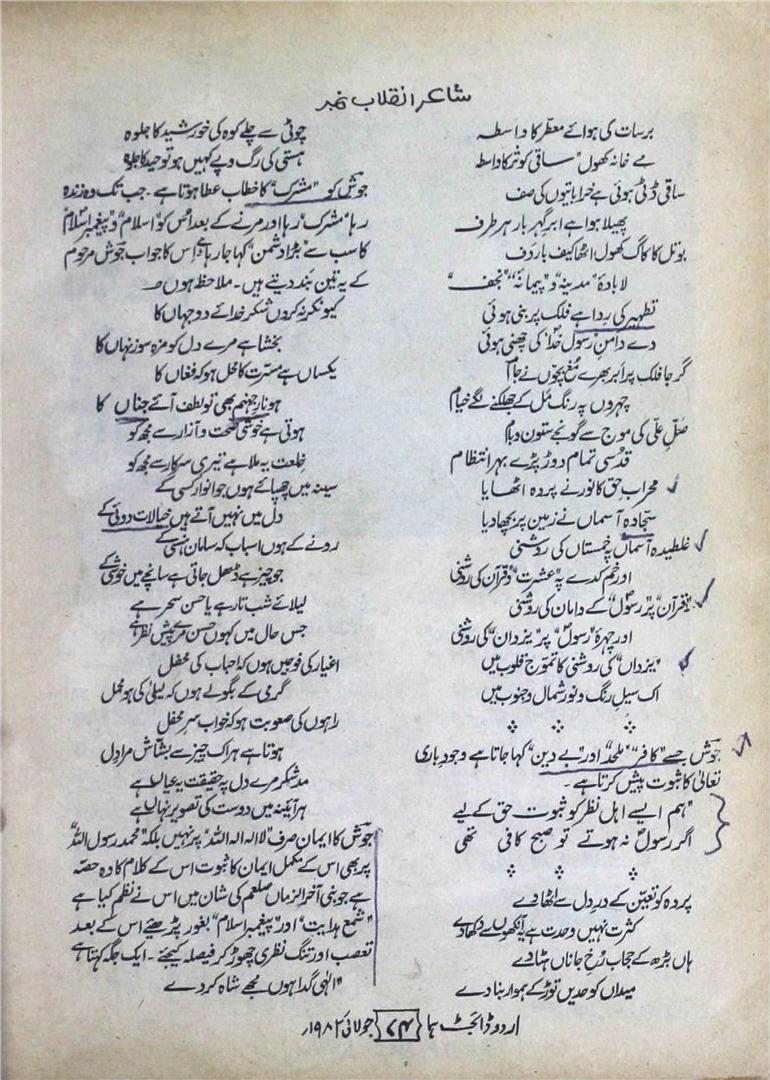 شاعر انقلاب نمبر
برسات کی ہوائے معطّر کا واسطہ
مے خانہ کھول "ساقی کوثر کا واسطہ
ساقی ڈٹی ہوئی ہے خراباتیوں کی صف
پھیلا ہوا ہے ابر گہر بار ہر طرف
بوتل کا کاگ کھول اٹھا کیف بار دف
لا بادۂ "مدینہ" و "پیمانۂ" "نجف"
تطہیر کی ردا ہے فلک پر بنی ہوئی
دے دامن رسولؐ خدا کی چھنی ہوئی
گرجا فلک پر ابر بھرے مُغ بچوں نے جام
چہروں پہ رنگ مُل کے جھلکنے لگے خیام
صلِّ علیٰ کی موج سے گونجے ستون و بام
قدسی تمام دوڑ پڑے بہر انتظام
محراب حق کا نور نے پردہ اٹھا یا
سجّادہ آسماں نے زمین پر بچھا دیا
غلطیدہ آسماں پہ خمستاں کی روشنی
اور خم کدے پہ "عشرت" و قرآن کی روشنی
"قرآن" پر "رسولؐ" کے داماں کی روشنی
اور چہرۂ "رسولؐ" پر "یزداں" کی روشنی
"یزداں" کی روشنی کا تموج قلوب میں
اک سیل رنگ و نور شمال و جنوب میں
جوش جسے "کافر" "ملحد" اور "بے دین" کہا جاتا ہے وجود باری
تعالیٰ کا ثبوت پیش کرتا ہے۔
"ہم ایسے اہل نظر کو ثبوت حق کے لیے
اگر رسولؐ نہ ہوتے تو صبح کافی تھی
پردہ کو تعیّن کے در دل سے اٹھا دے
کثرت نہیں وحدت ہے یہ آنکھوں سے دکھا دے
ہاں بڑھ کے حجاب رُخ جاناں ہٹا دے
میداں کو حدیں توڑ کے ہموار بنا دے
چوٹی سے چلے کوہ کی خورشید کا جلوہ
ہستی کی رگ و پے کہیں ہو توحید کا جلوہ
جوش کو "مشرک" کا خطاب عطا ہوتا ہے۔ جب تک وہ زندہ
رہا "مشرک" رہا اور مرنے کے بعد اُس کو "اسلام" و "پیغمبر اسلامؐ"
کا سب سے "بڑا دشمن" کہا جا رہا ہے، اِس کا جواب جوش مرحوم
کے یہ تین بند دیتے ہیں۔ ملاحظہ ہوں
کیونکر نہ کروں شکر خدائے دو جہاں کا
بخشا ہے مرے دل کو مزہ سوز نہاں کا
یکساں ہے مسرّت کا محل ہو کہ فغاں کا
ہو نار جہنم بھی تو لطف آئے جناں کا
ہوتی ہے خوشی صحت و آزار سے مجھ کو
خلعت یہ ملا ہے تیری سرکار سے مجھ کو
سینہ میں چھپائے ہوں جو انوار کسی کے
دل میں نہیں آتے ہیں خیالات دوئی کے
رونے کے ہوں اسباب کہ سامان ہنسی کے
جو چیز ہے ڈھل جاتی ہے سانچے میں خوشی کے
لیلائے شب تار ہے یا حسن سحر ہے
جس حال میں کہوں حسن مرے پیش نظر ہے
اغیار کی فوجیں ہوں کہ احباب کی محفل
گرمی کے بگولے ہوں کہ لیلیٰ کی ہو محمل
راہوں کی صعوبت ہو کہ خواب سر محفل
ہوتا ہے ہر اک چیز سے بشاش مرا دل
صد شکر مرے دل پہ حقیقت یہ عیاں ہے
ہر آئینہ میں دوست کی تصویر نہاں ہے
جوش کا ایمان صرف "لا الہ الا اللہ" پر نہیں بلکہ "محمد رسول اللہ"
پر بھی اس کے مکمل ایمان کا ثبوت اس کے کلام کا وہ حصّہ
ہے جو نبی آخر الزماں صلعم کی شان میں اس نے نظم کیا ہے
"شمع ہدایت" اور "پیغمبر اسلام" بغور پڑھئے اس کے بعد
تعصب اور تنگ نظری چھوڑ کر فیصلہ کیجئے۔ ایک جگہ کہتا ہے
"الٰہی گدا ہوں مجھے شاہ کر دے
اردو ڈائجسٹ ہما ۷۴ جولائی ۱۹۸۲ء